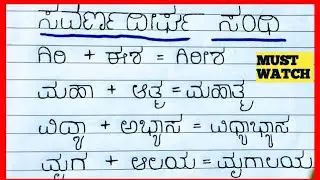 ಸವರ್ಣದೀರ್ಘ ಸಂಧಿ
ಗಿರಿ + ಈಶ = ಗಿರೀಶ
MUST
WATCH
ಮಹಾ + ಆತ್ಮ = ಮಹಾತ್ಮ
ವಿದ್ಯಾ + ಅಭ್ಯಾಸ = ವಿದ್ಯಾಭ್ಯಾಸ
ಮೃಗ + ಆಲಯ = ಮೃಗಾಲಯ